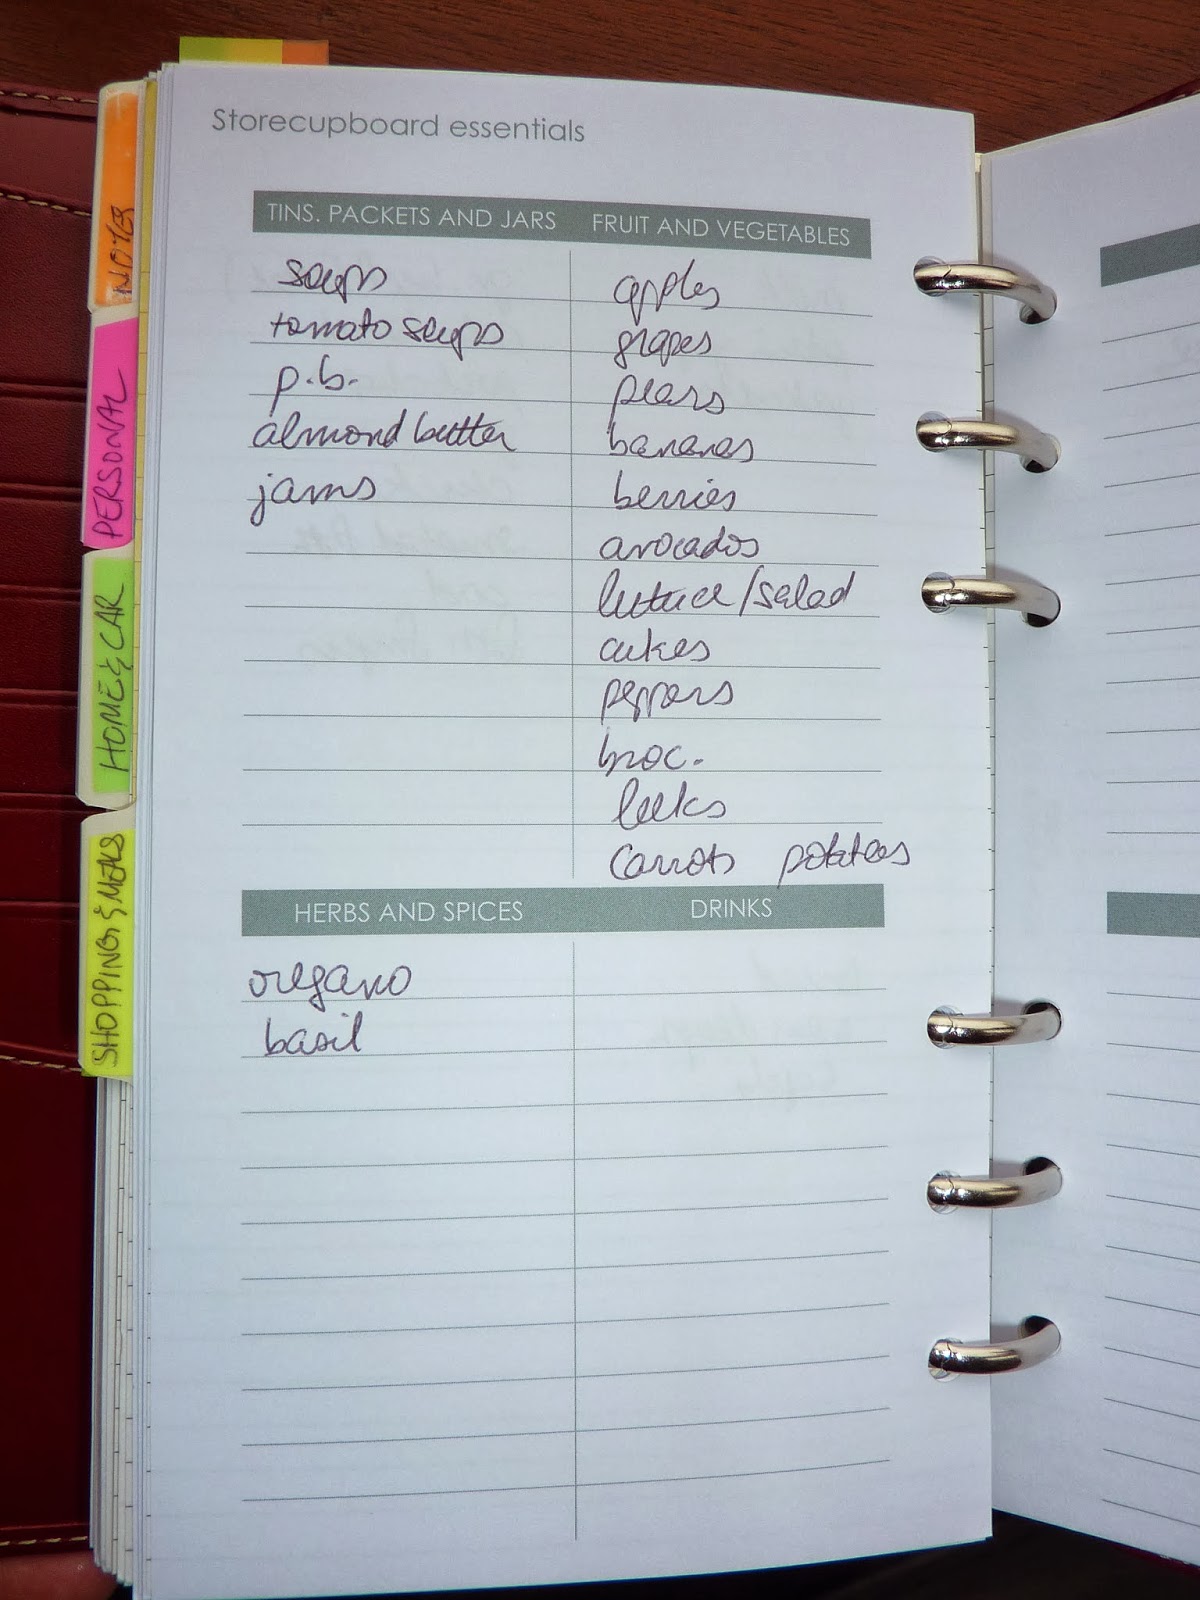 Storecupboard essentials
TINS. PACKETS AND JARS
soups
tomato soups
p.b.
almond butter
jams
FRUIT AND VEGETABLES
apples
grapes
pears
bananas
berries
avocados
lettuce/salad
cukes
peppers
broc.
leeks
carrots potatoes
HERBS AND SPICES
oregano
basil
DRINKS
NOTES
PERSONAL
HOME & CAR
SHOPPING & MEALS